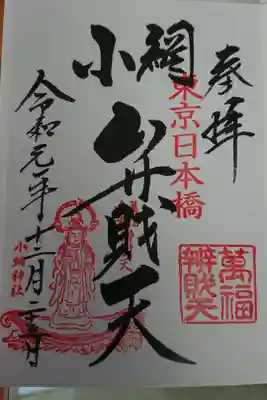 奉拝
東京日本橋
小網
弁財天
萬福
辨財天
令和元年十二月二十五日
小網神社